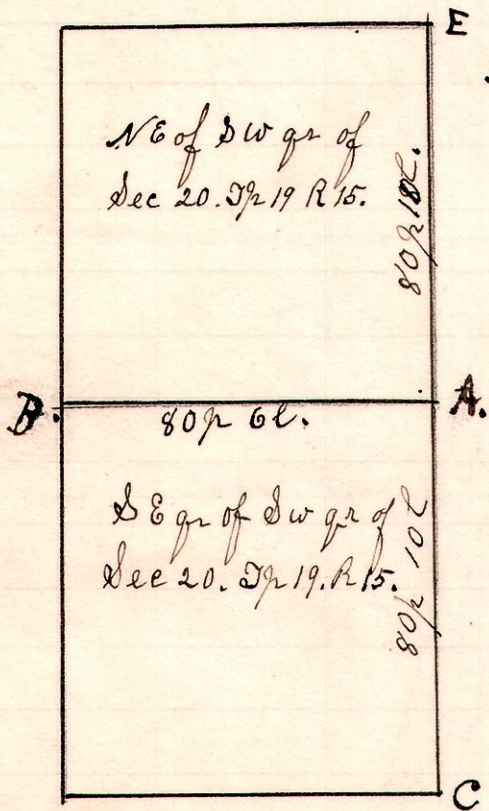 E
NE of SW qr of
Sec 20. Tp 19 R 15.
80p 18l.
B.
A.
80p 6l.
SE qr of SW qr of
Sec 20. Tp 19. R 15.
80p 10l
C